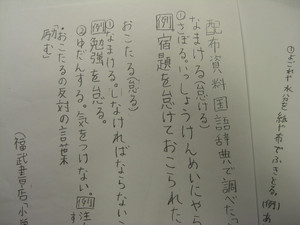 ①よごれや水分を紙や布でふきとる。(例)あ
配布資料 国語辞典で調べた
なまける(怠ける)
①さぼる。いっしょうけんめいにやら
[例]宿題を怠けておこられた
おこたる(怠る)
①なまける。しなければならない
[例]勉強を怠る。
②ゆだんする。気をつけない。[例]注
・おこたるの反対の言葉
「励む」
(福武書店「小学